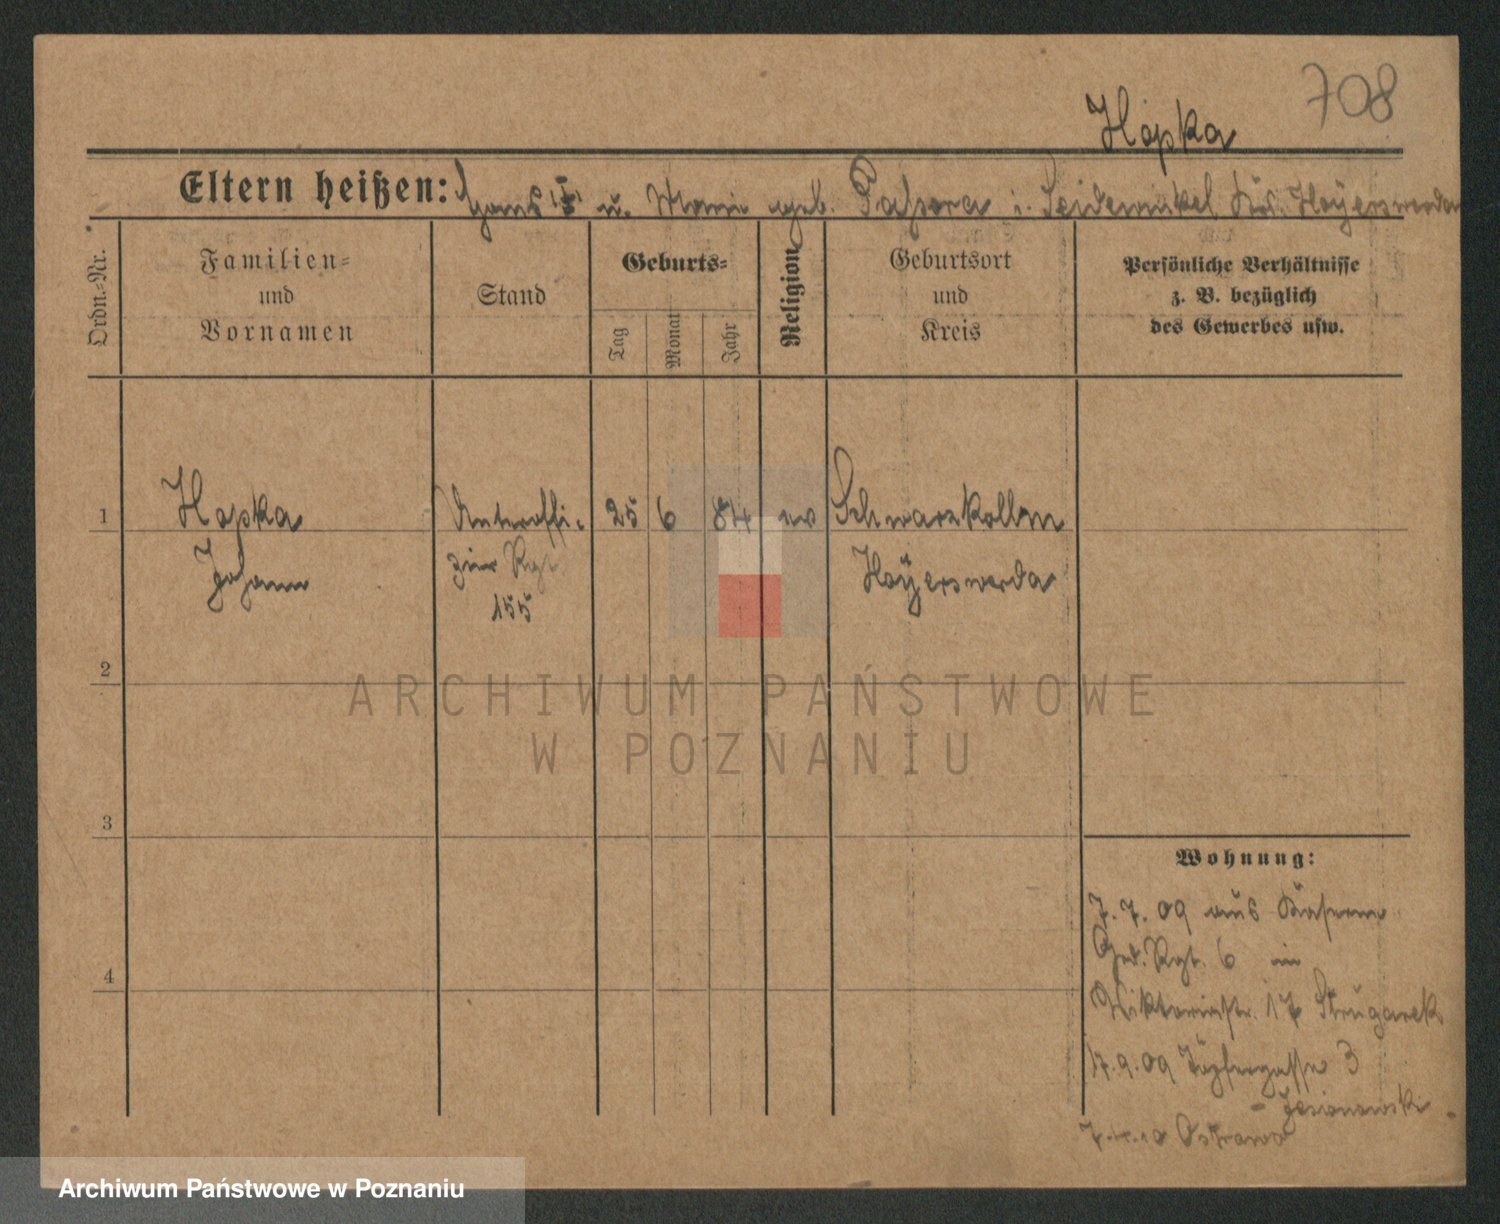 708
Hopka
Eltern heißen: Hans u. Marie geb. i. Hoyerswerda
Ordn.-Nr.
Familien-
und
Vornamen
Stand
Geburts-
Tag
Monat
Jahr
Religion
Geburtsort
und
Kreis
Persönliche Verhältnisse
z. B. bezüglich
des Gewerbes usw.
1
Hopka
Johann
Unteroffi-
zier Rgt
155
25 6 84 ev
Schwarzkollm
Hoyerswerda
2
3
4
Wohnung:
7. 7. 09 aus Kaserne
Gred. Rgt. 6 in
Viktoriastr. 17 Strugarek
17.9.09 Töpfergasse 3
- Jesionowski -
Ostrowo
ARCHIWUM PAŃSTWOWE
W POZNANIU
Archiwum Państwowe w Poznaniu